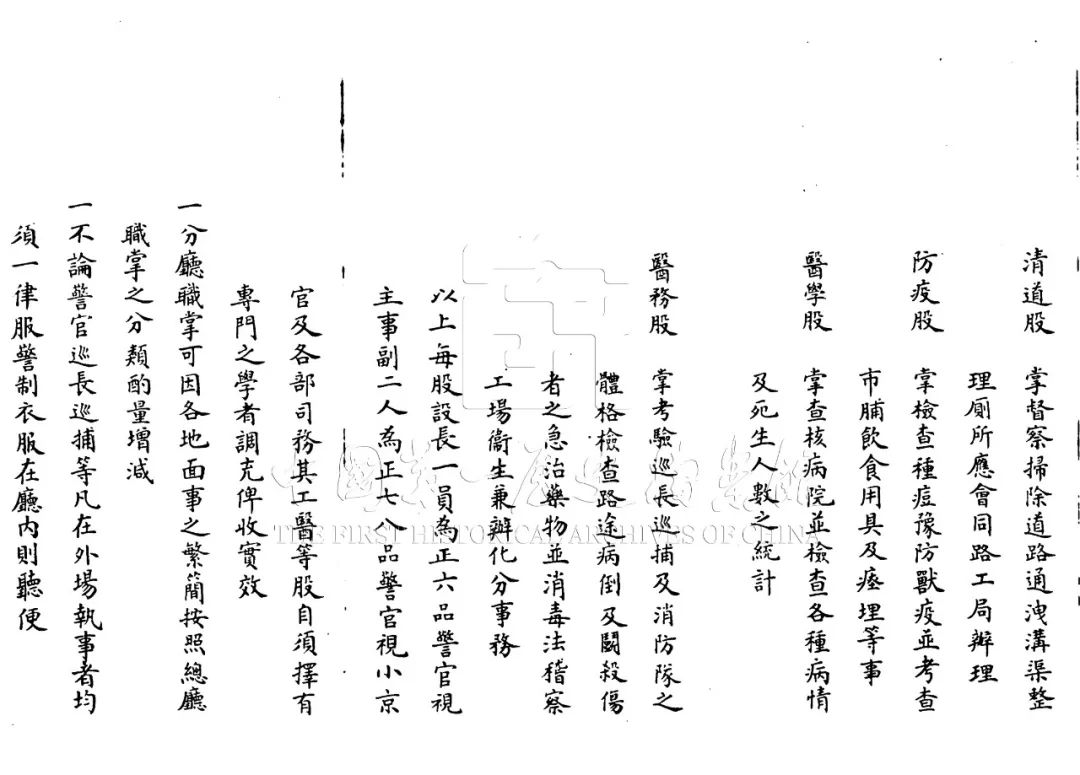 清道股 掌督察掃除道路通洩溝渠整
理厠所應會同路工局辦理
防疫股 掌檢查種痘豫防獸疫並考查
市脯飲食用具及瘞埋等事
醫學股 掌查核病院並檢查各種病情
及死生人數之統計
醫務股 掌考驗巡長巡捕及消防隊之
體格檢查路途病倒及鬬殺傷
者之急治藥物並消毒法稽察
工場衞生兼辦化分事務
以上每股設長一員為正六品警官視
主事副二人為正七八品警官視小京
官及各部司務其工醫等股自須擇有
專門之學者調充俾收實效
一分廳職掌可因各地面事之繁簡按照總廳
職掌之分類酌量增減
一不論警官巡長巡捕等凡在外場執事者均
須一律服警制衣服在廳內則聽便
中國第一歷史檔案館
THE FIRST HISTORICAL ARCHIVES OF CHINA